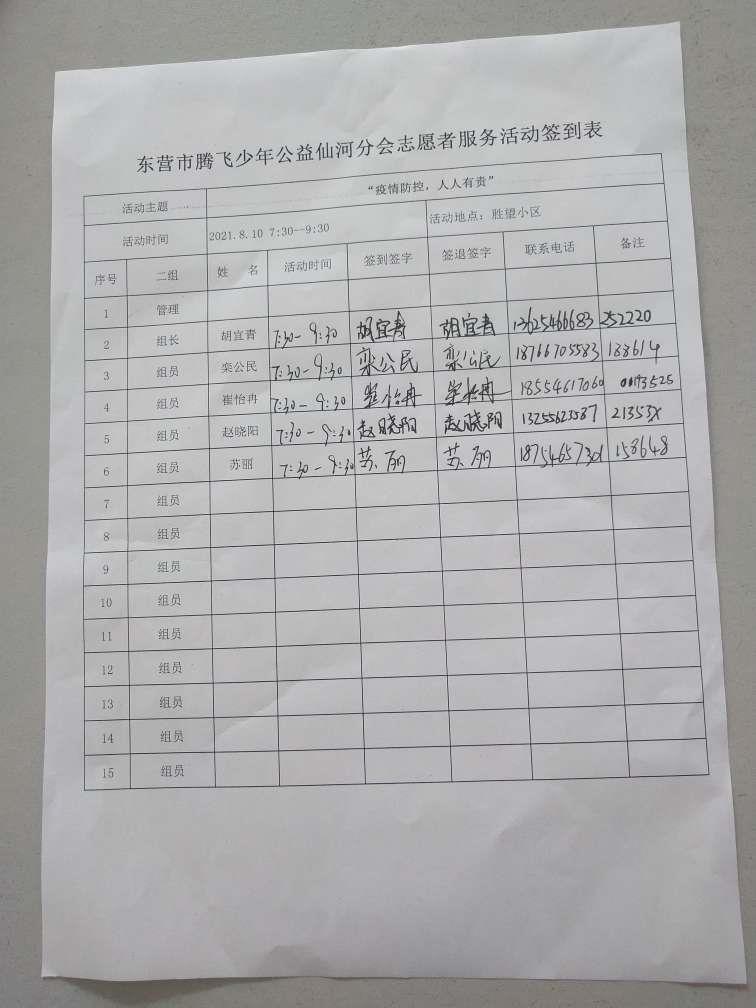 东营市腾飞少年公益仙河分会志愿者服务活动签到表
活动主题 “疫情防控，人人有责”
活动时间 2021.8.10 7:30--9:30 活动地点：胜望小区
序号 二组 姓 名 活动时间 签到签字 签退签字 联系电话 备注
1 管理
2 组长 胡宜青 7:30-9:30 胡宜青 胡宜青 13625466683 252220
3 组员 栾公民 7:30-9:30 栾公民 栾公民 18766705583 188614
4 组员 崔怡冉 7:30-9:30 崔怡冉 崔怡冉 18554617060
5 组员 赵晓阳 7:30-9:30 赵晓阳 赵晓阳 21353X
6 组员 苏丽 7:30-9:30 苏丽 苏丽 158648
7 组员
8 组员
9 组员
10 组员
11 组员
12 组员
13 组员
14 组员
15 组员